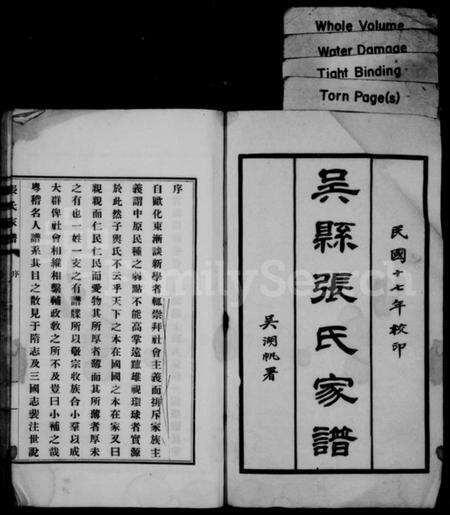 Whole Volume
Water Damage
Tight Binding
Torn Page(s)
民國十七年校印
吳縣張氏家譜
吳湖帆署
序
自歐化東漸談新學者輒崇拜社會主義而排斥家族主
義謂中原民種之弱點不能高掌遠蹠雄視環球者實源
於此然子輿氏不云乎天下之本在國國之本在家又曰
親親而仁民仁民而愛物其所厚者薄而其所薄者厚未
之有也一姓一支之有譜牒所以敬宗收族合小羣以成
大群俾社會相維相繫輔政敎之所不及豈曰小補之哉
粵稽名人譜系其目之散見于隋志及三國志裴注世說
張氏家譜 序
FamilySearch